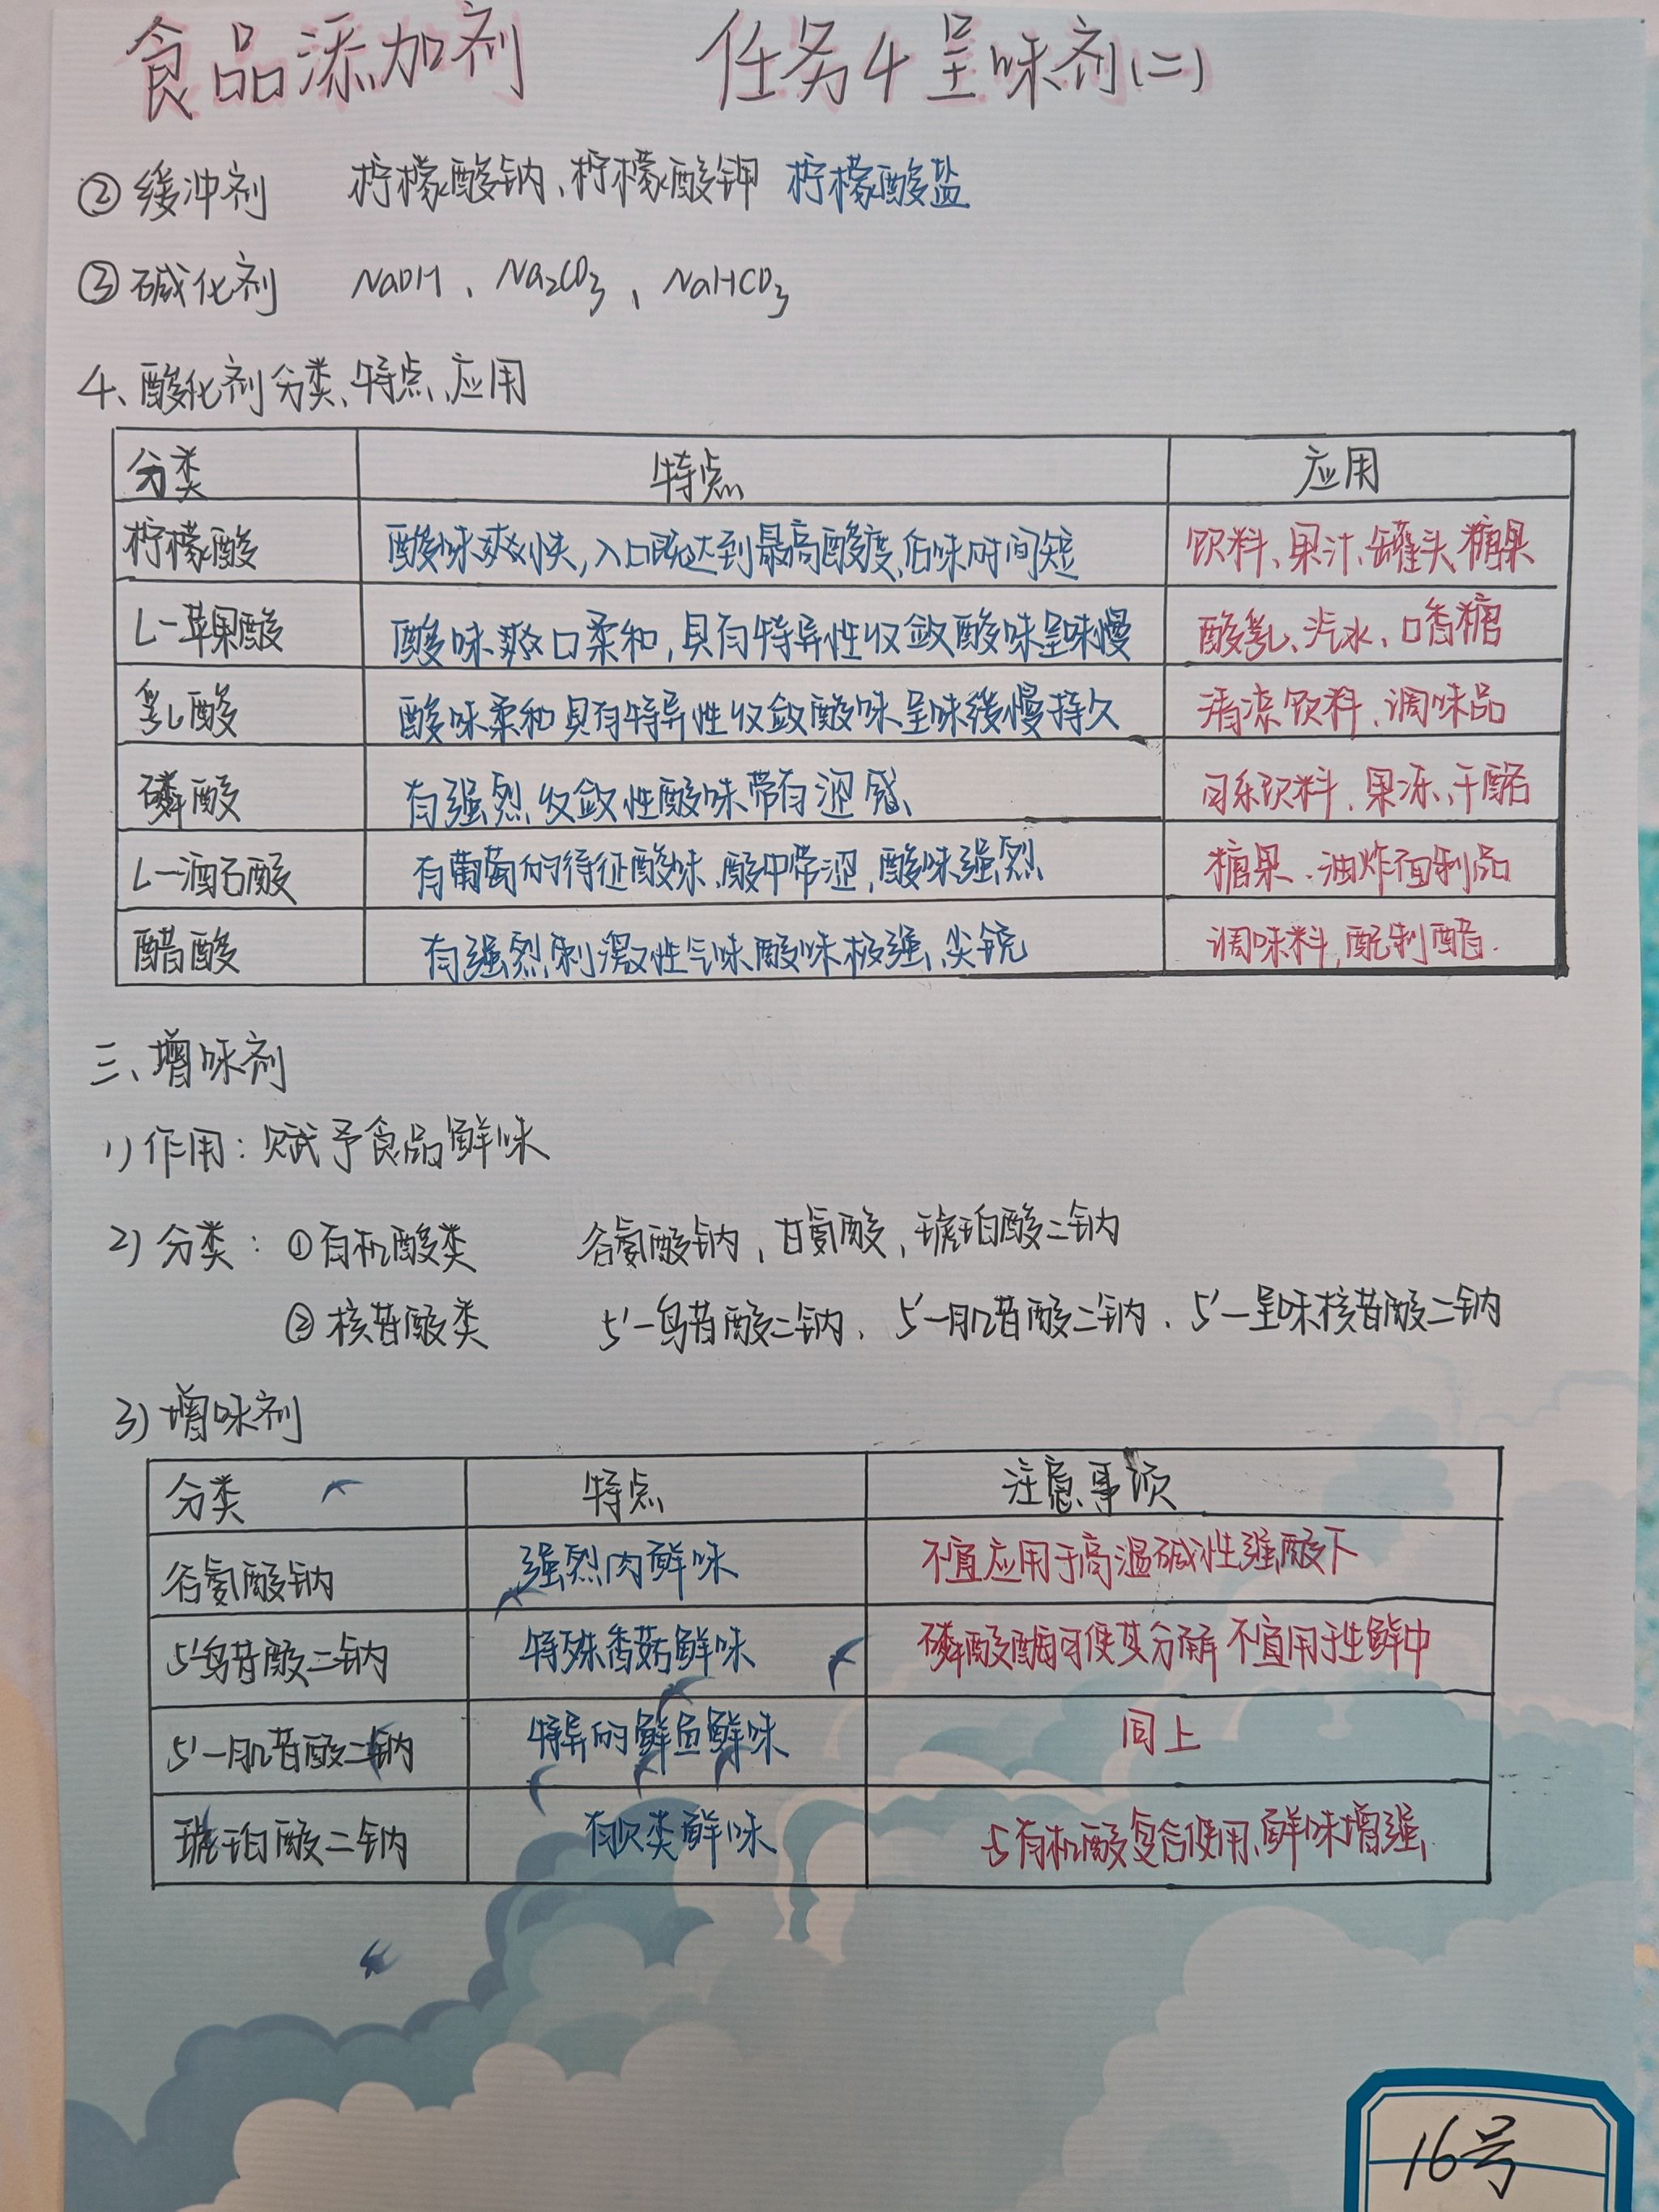 食品添加剂 任务4 呈味剂(二)
②缓冲剂 柠檬酸钠、柠檬酸钾 柠檬酸盐
③碱化剂 NaOH、Na₂CO₃、NaHCO₃
4、酸化剂分类、特点、应用
分类 特点 应用
柠檬酸 酸味爽快,入口既达到最高酸度、后味时间短 饮料、果汁、罐头、糖果
L-苹果酸 酸味爽口柔和,具有特异性收敛酸味呈味慢 酸乳、汽水、口香糖
乳酸 酸味柔和具有特异性收敛酸味呈味缓慢持久 清凉饮料、调味品
磷酸 有强烈收敛性酸味带有涩感、 可乐饮料、果冻、干酪
L-酒石酸 有葡萄的特征酸味、酸中带涩,酸味强烈 糖果、油炸面制品
醋酸 有强烈刺激性气味酸味极强、尖锐 调味料,配制醋.
三、增味剂
1)作用:赋予食品鲜味
2)分类:①有机酸类 谷氨酸钠,甘氨酸,琥珀酸二钠
②核苷酸类 5'-鸟苷酸二钠、5'-肌苷酸二钠、5'-呈味核苷酸二钠
3)增味剂
分类 特点 注意事项
谷氨酸钠 强烈肉鲜味 不宜应用于高温碱性强酸下
5'鸟苷酸二钠 特殊香菇鲜味 磷酸酶可使其分解 不宜用于生鲜中
5'-肌苷酸二钠 特异的鲜鱼鲜味 同上
琥珀酸二钠 有贝类鲜味 与有机酸复合使用、鲜味增强、
16号